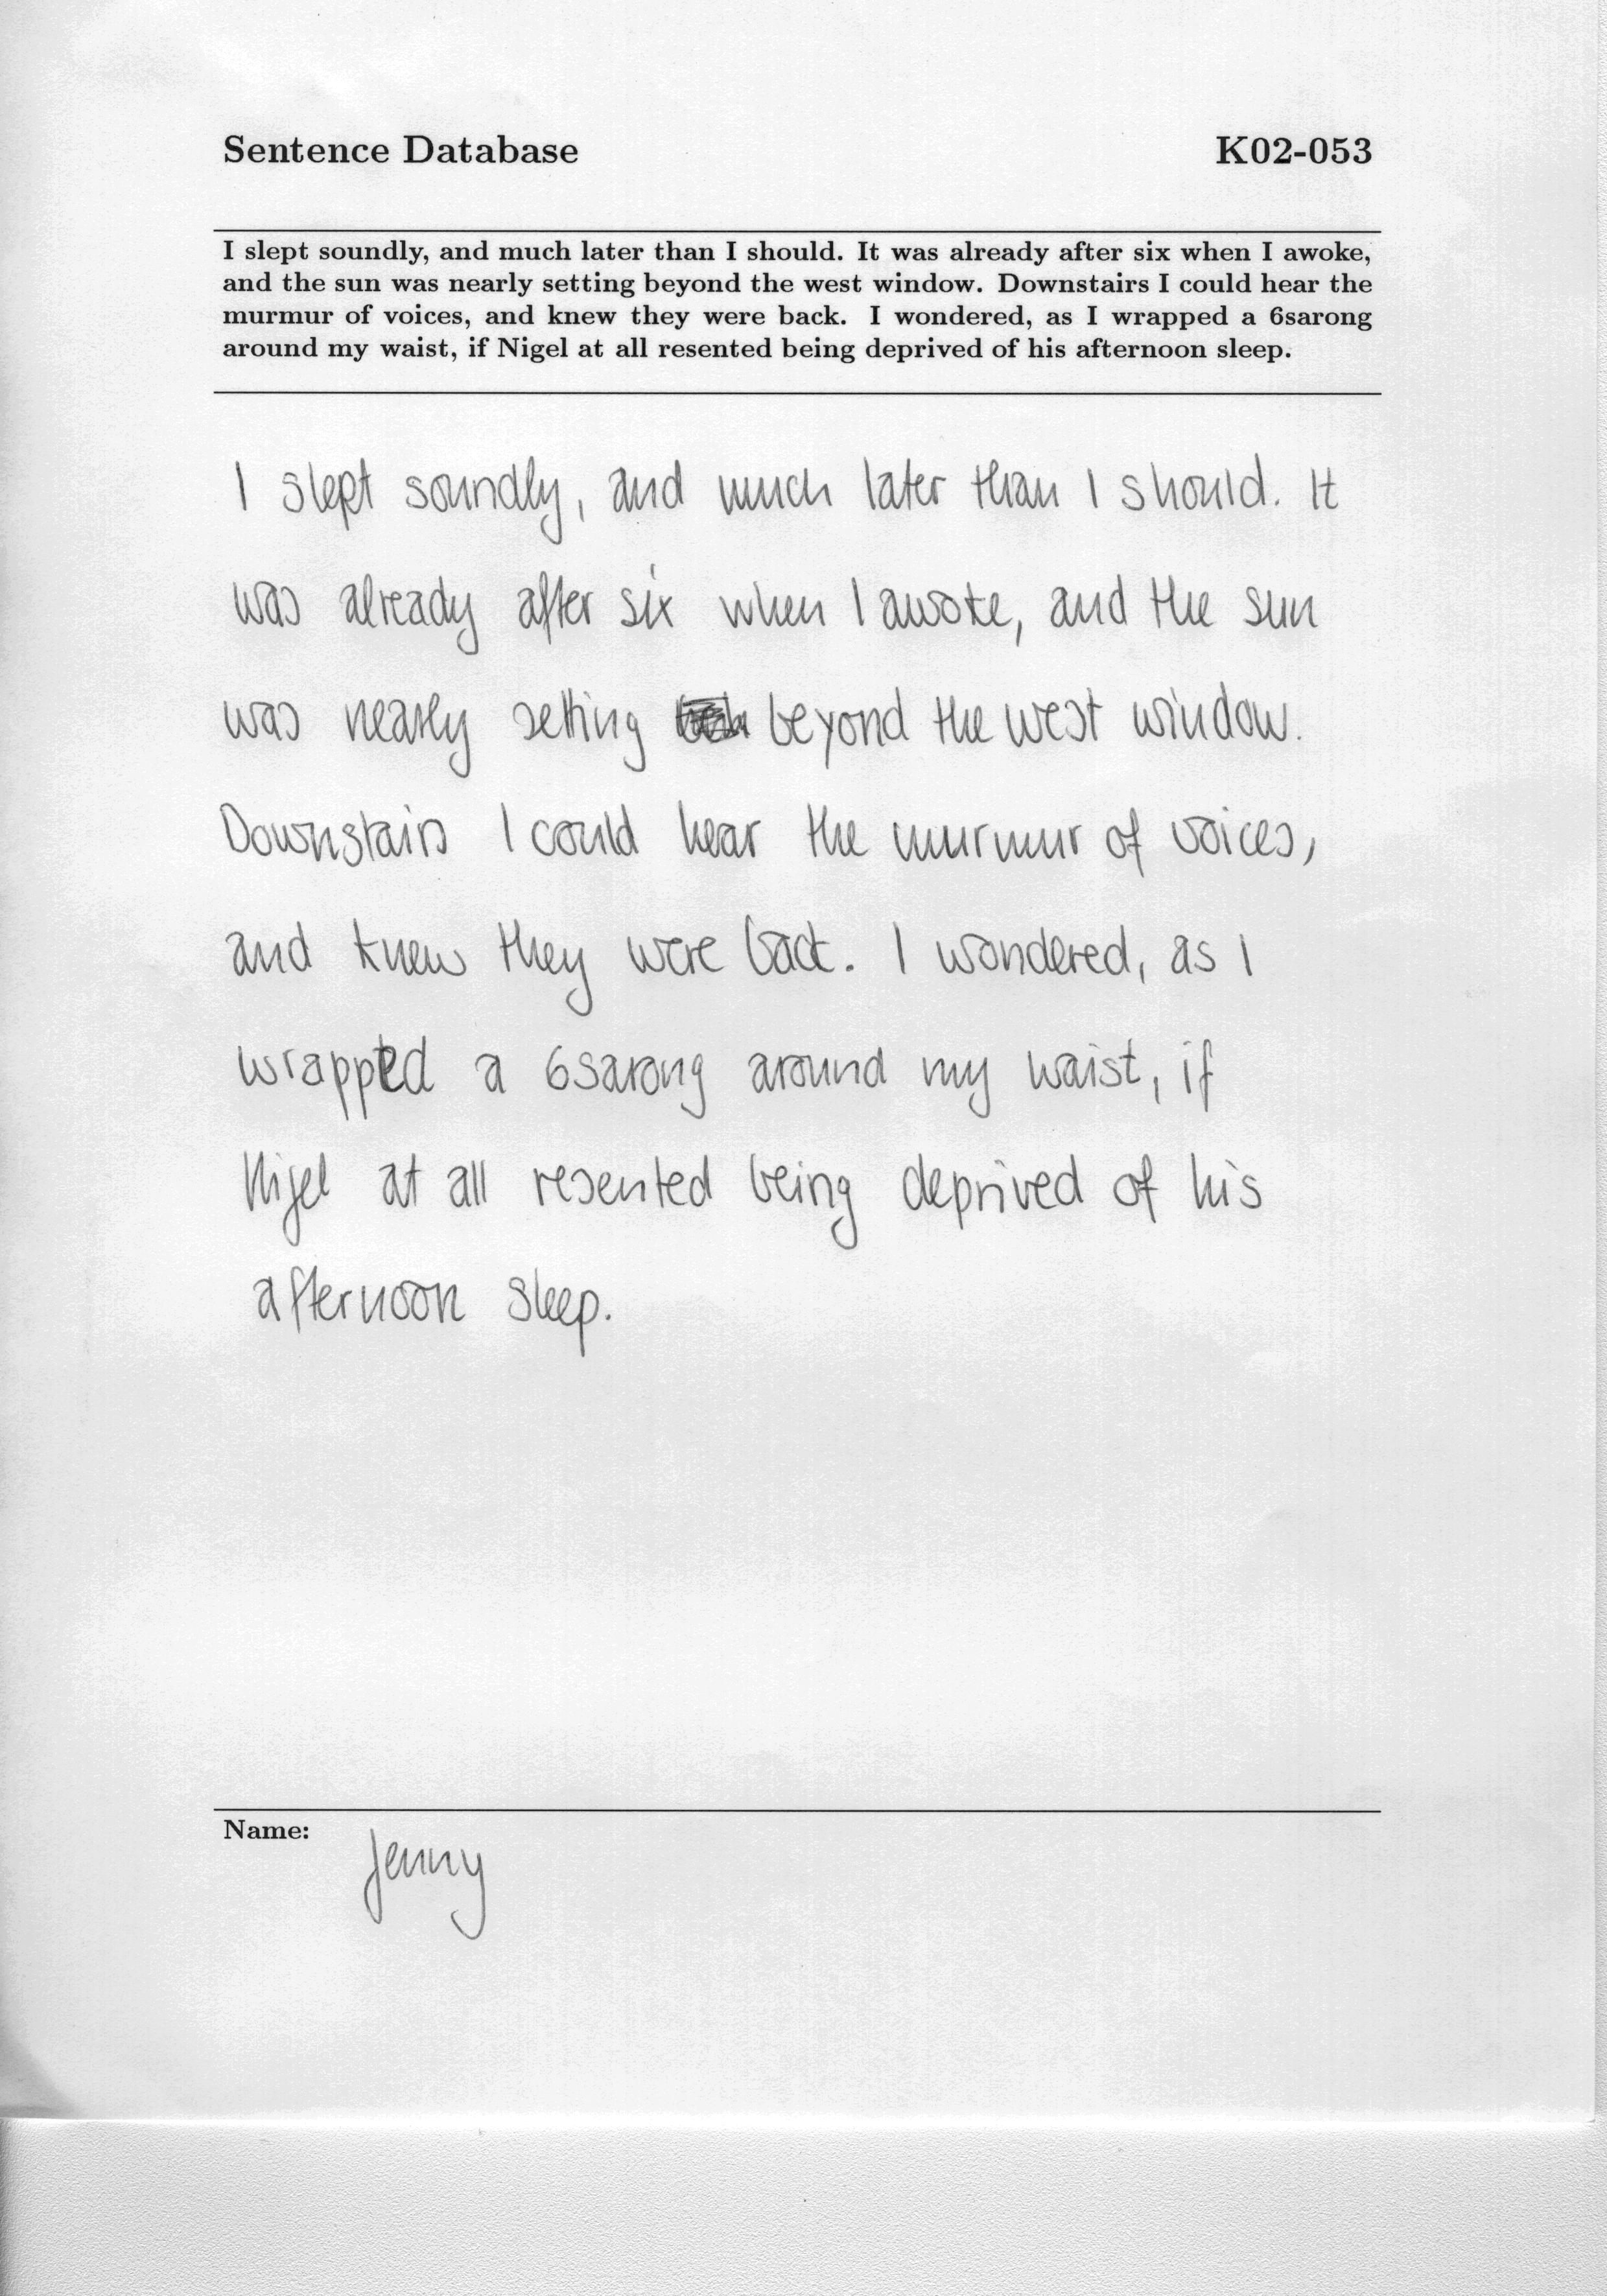 Sentence Database K02-053
I slept soundly, and much later than I should. It was already after six when I awoke,
and the sun was nearly setting beyond the west window. Downstairs I could hear the
murmur of voices, and knew they were back. I wondered, as I wrapped a 6sarong
around my waist, if Nigel at all resented being deprived of his afternoon sleep.
I slept soundly, and much later than I should. It
was already after six when I awoke, and the sun
was nearly setting beyond the west window.
Downstairs I could hear the murmur of voices,
and knew they were back. I wondered, as I
wrapped a 6sarong around my waist, if
Nigel at all resented being deprived of his
afternoon sleep.
Name:
Jenny